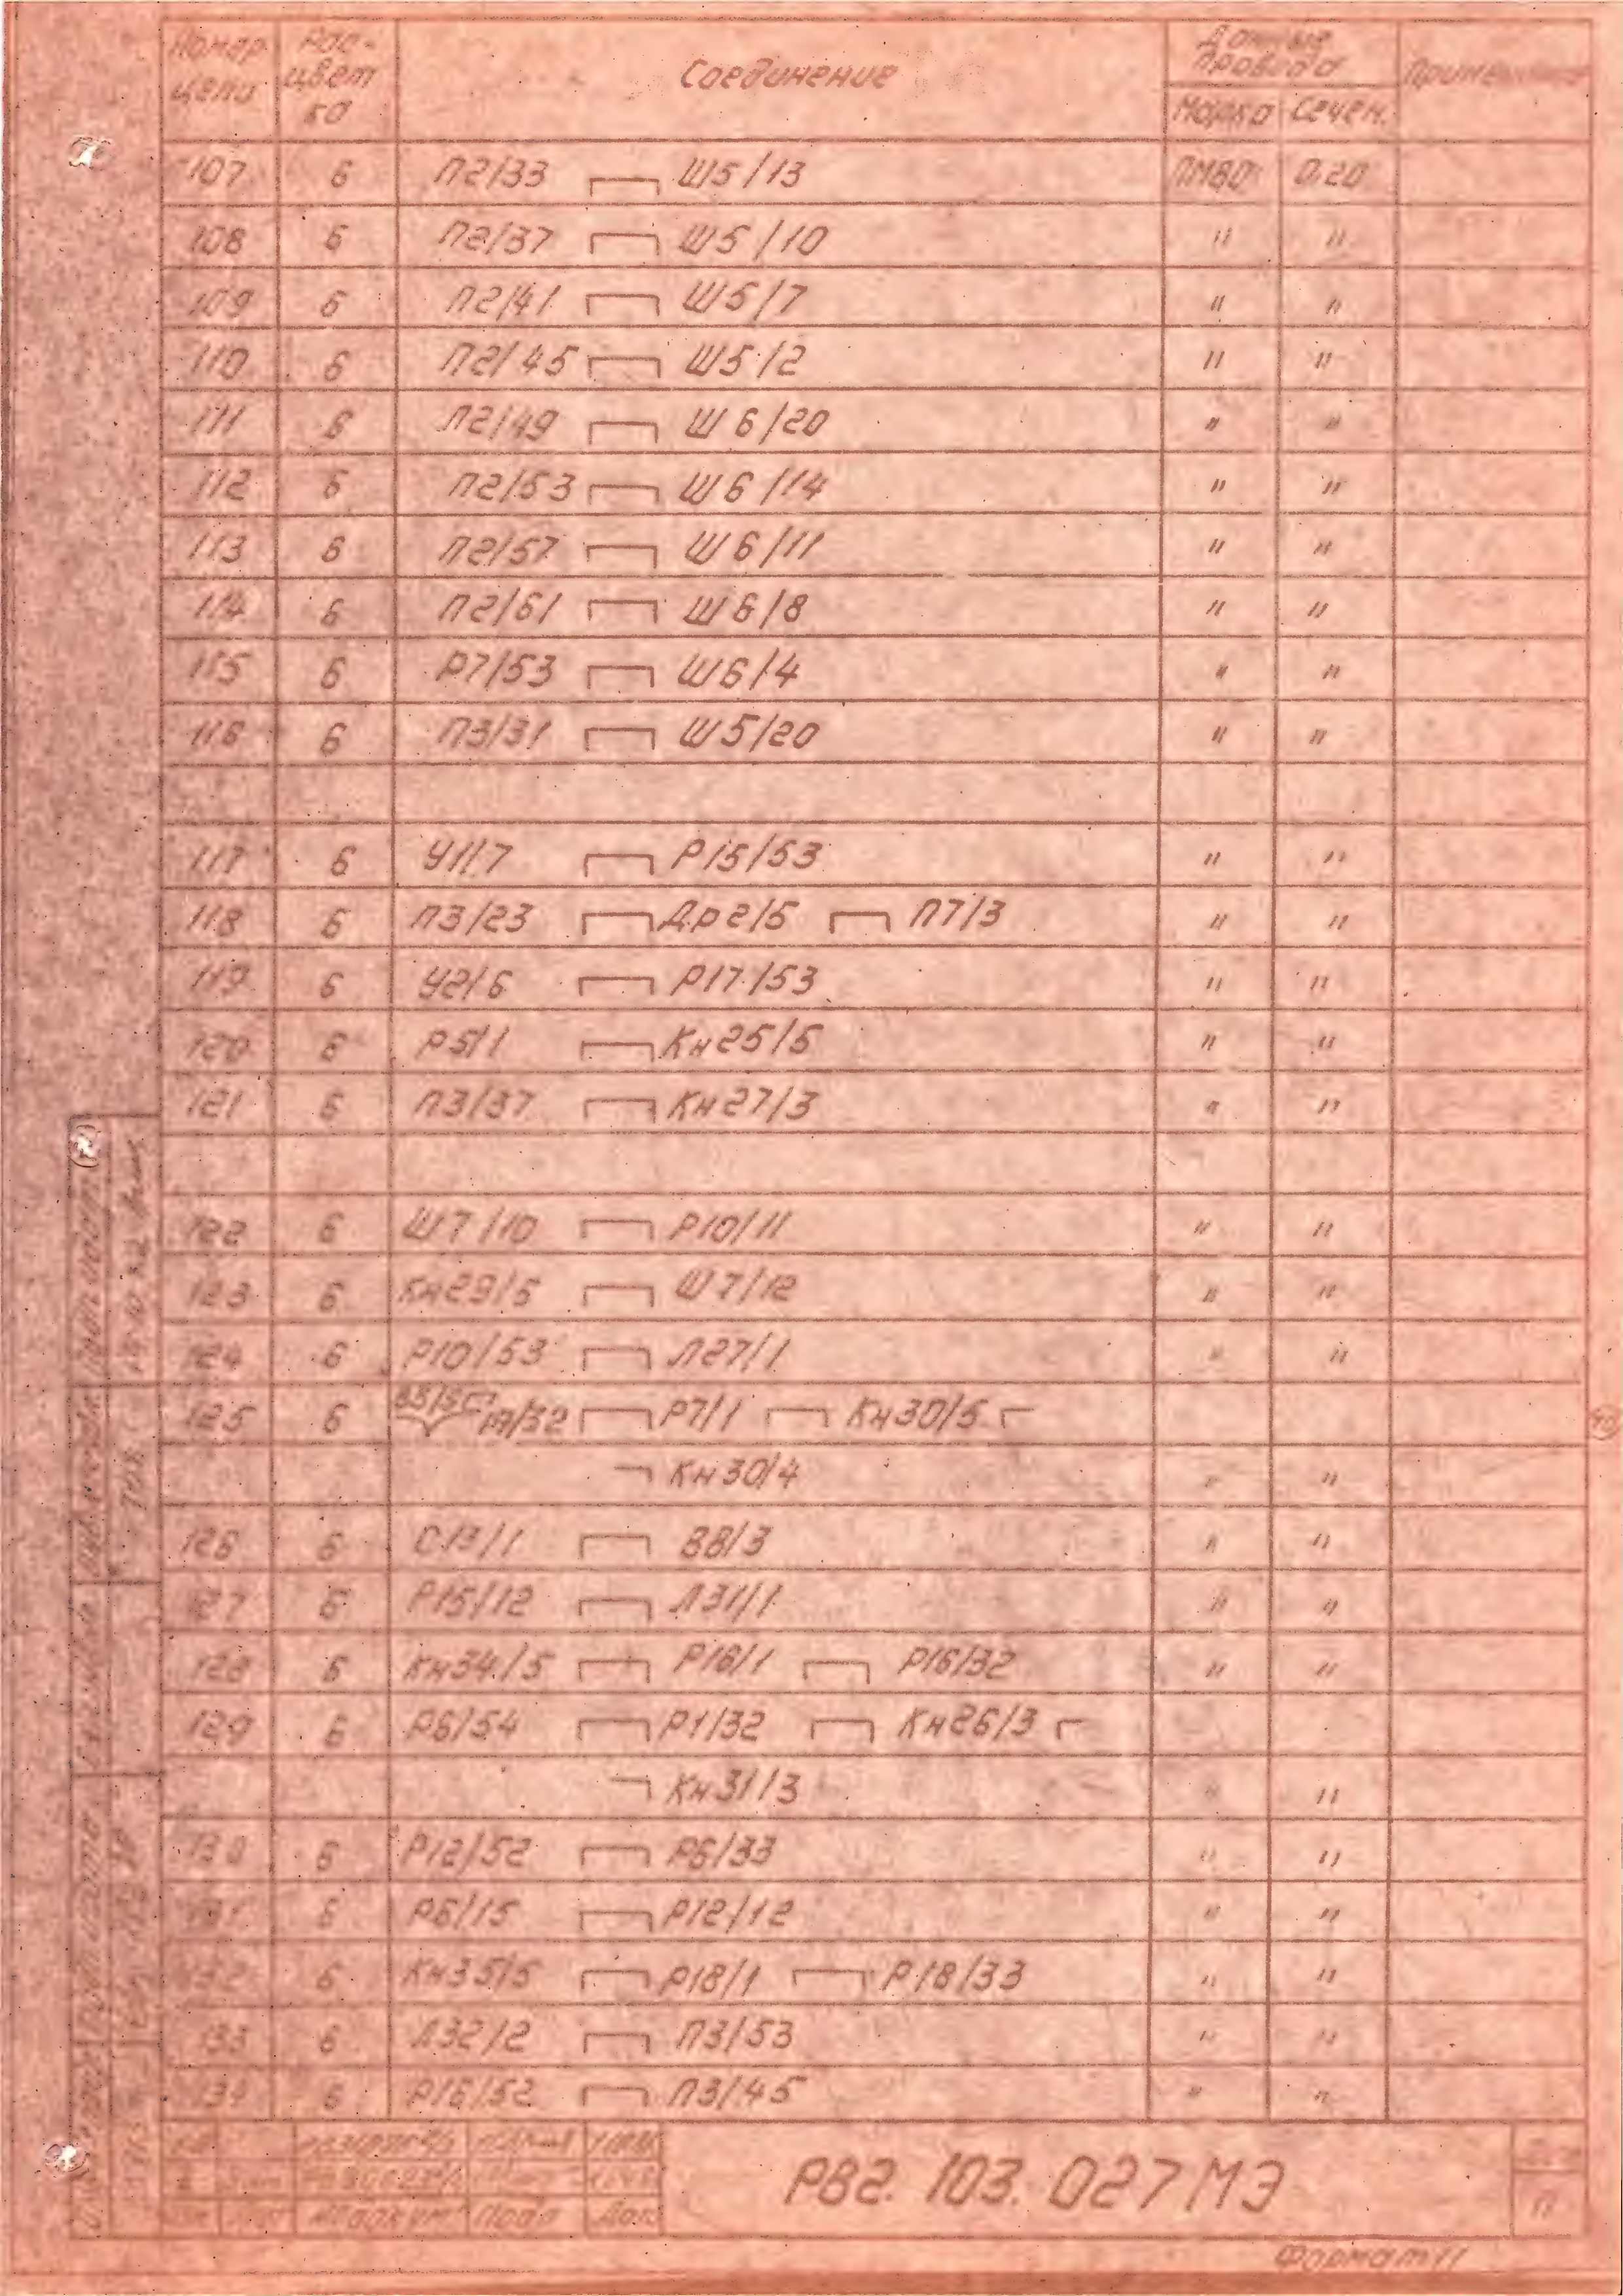 Номер цепи Рас-цвет ка Соединение Данные провода Примечание
Марка Сечен.
107 б П2/33 Ш5/13 ПМВО 0.20
108 б П2/37 Ш5/10 " "
109 б П2/41 Ш5/7 " "
110 б П2/45 Ш5/2 " "
111 б П2/49 Ш6/20 " "
112 б П2/53 Ш6/14 " "
113 б П2/57 Ш6/11 " "
114 б П2/61 Ш6/8 " "
115 б Р7/53 Ш6/4 " "
116 б П3/31 Ш5/20 " "
117 б У1/7 Р15/53 " "
118 б П3/23 Др2/5 П7/3 " "
119 б У2/6 Р17/53 " "
120 б Р5/1 Кн25/5 " "
121 б П3/37 Кн27/3 " "
122 б Ш7/10 Р10/11 " "
123 б Кн29/5 Ш7/12 " "
124 б Р10/53 Л27/1 " "
125 б Р7/1 Кн30/5
Кн30/4 " "
126 б С13/1 В8/3 " "
127 б Р15/12 Л31/1 " "
128 б Кн34/5 Р16/1 Р16/32 " "
129 б Р6/54 Р1/32 Кн26/3
Кн31/3 " "
130 б Р12/52 Р6/33 " "
131 б Р6/15 Р12/12 " "
132 б Кн35/5 Р18/1 Р18/33 " "
133 б Л32/2 П3/53 " "
134 б Р16/52 П3/45 " "
РВ2.103.027МЭ
Формат 11